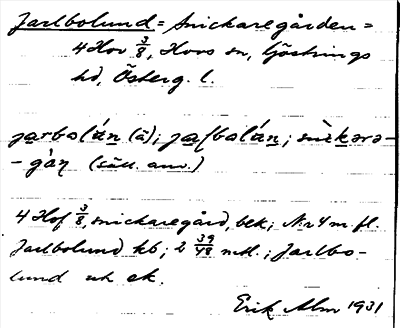 Jarlbolund = Snickaregården =
4 Hov 3/8, Hovs sn, Göstrings
hd, Österg. l.
jarbolán (ä); jaſbolán; snìkərə-
- gàɳ (säll. anv.)
4 Hof 3/8, snickaregård, bek; Nr 4 m. fl.
Jarlbolund kb; 2 39/48 mtl.; Jarlbo-
lund uk ek.
Erik Alm 1931